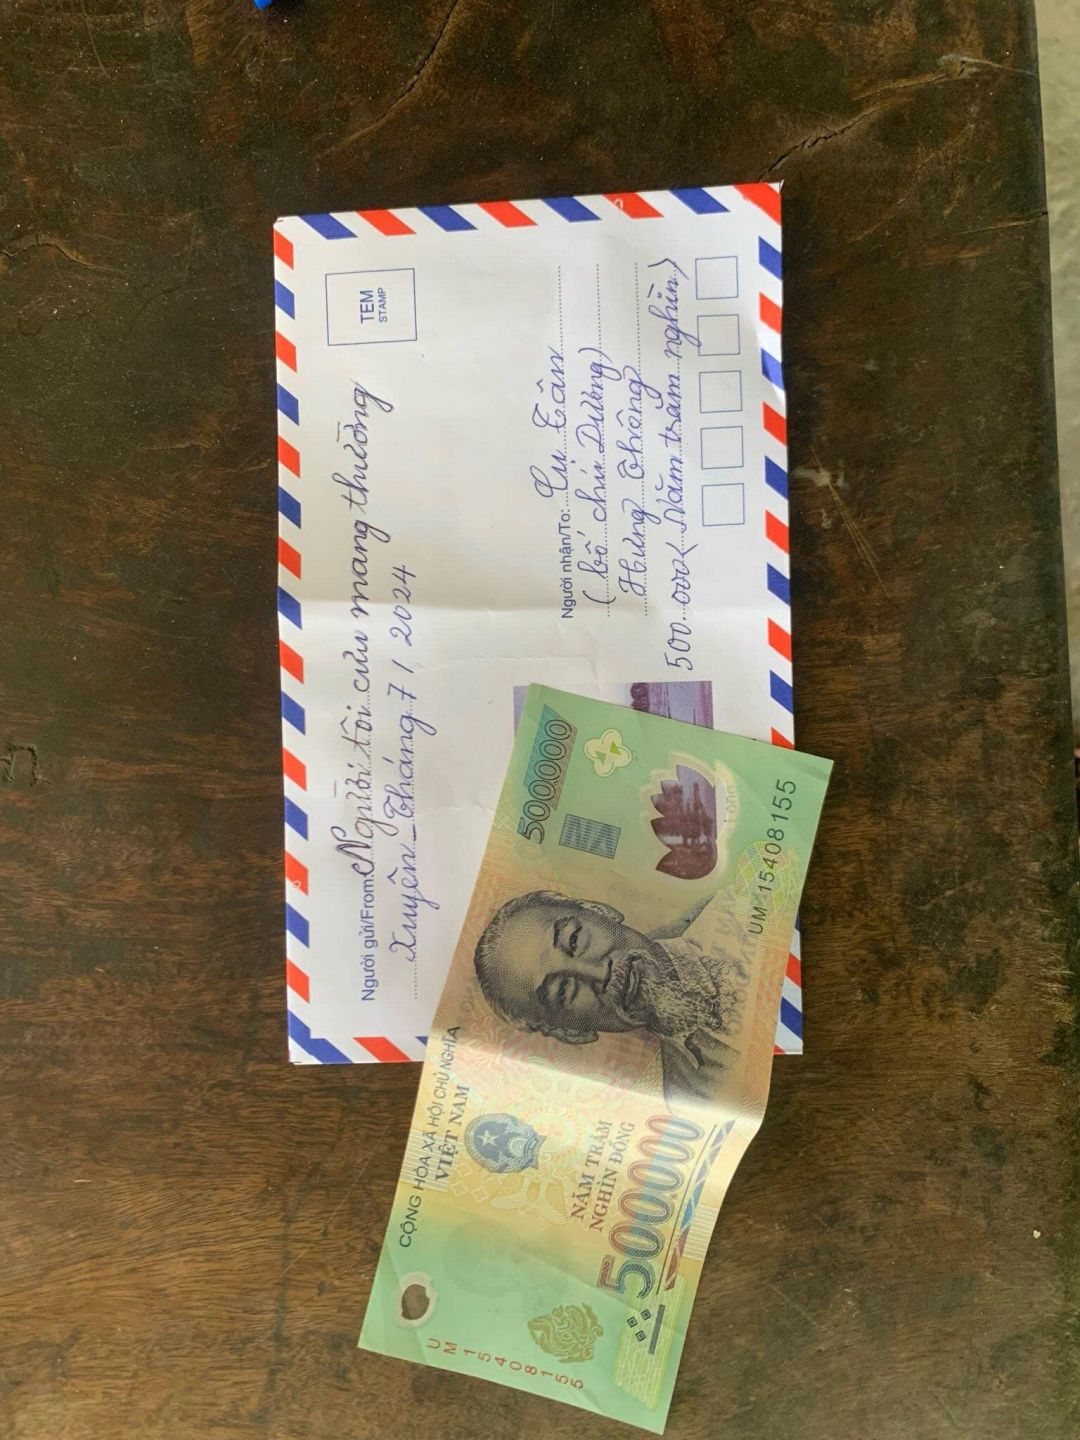 Người gửi/From: Người tôi cưu mang thường
xuyên - Tháng 7/2024
TEM
STAMP
Người nhận/To: Cụ Tân
(bố chú Dường)
Hưng Thông
500.000 (Năm trăm nghìn)
CỘNG HÒA XÃ HỘI CHỦ NGHĨA
VIỆT NAM
500000
NĂM TRĂM
NGHÌN ĐỒNG
500000
UM 15408155
UM 15408155